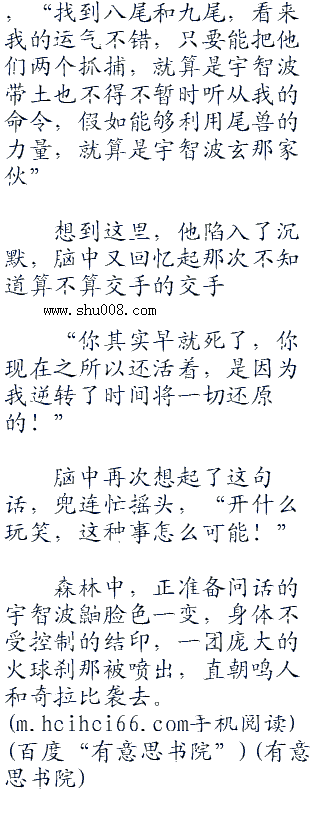 ，“找到八尾和九尾，看来
我的运气不错，只要能把他
们两个抓捕，就算是宇智波
带土也不得不暂时听从我的
命令，假如能够利用尾兽的
力量，就算是宇智波玄那家
伙”
想到这里，他陷入了沉
默，脑中又回忆起那次不知
道算不算交手的交手
www.shu008.com
“你其实早就死了，你
现在之所以还活着，是因为
我逆转了时间将一切还原
的！”
脑中再次想起了这句
话，兜连忙摇头，“开什么
玩笑，这种事怎么可能！”
森林中，正准备问话的
宇智波鼬脸色一变，身体不
受控制的结印，一团庞大的
火球刹那被喷出，直朝鸣人
和奇拉比袭去。
(m.hcihci66.com手机阅读)
(百度“有意思书院”)(有意
思书院)